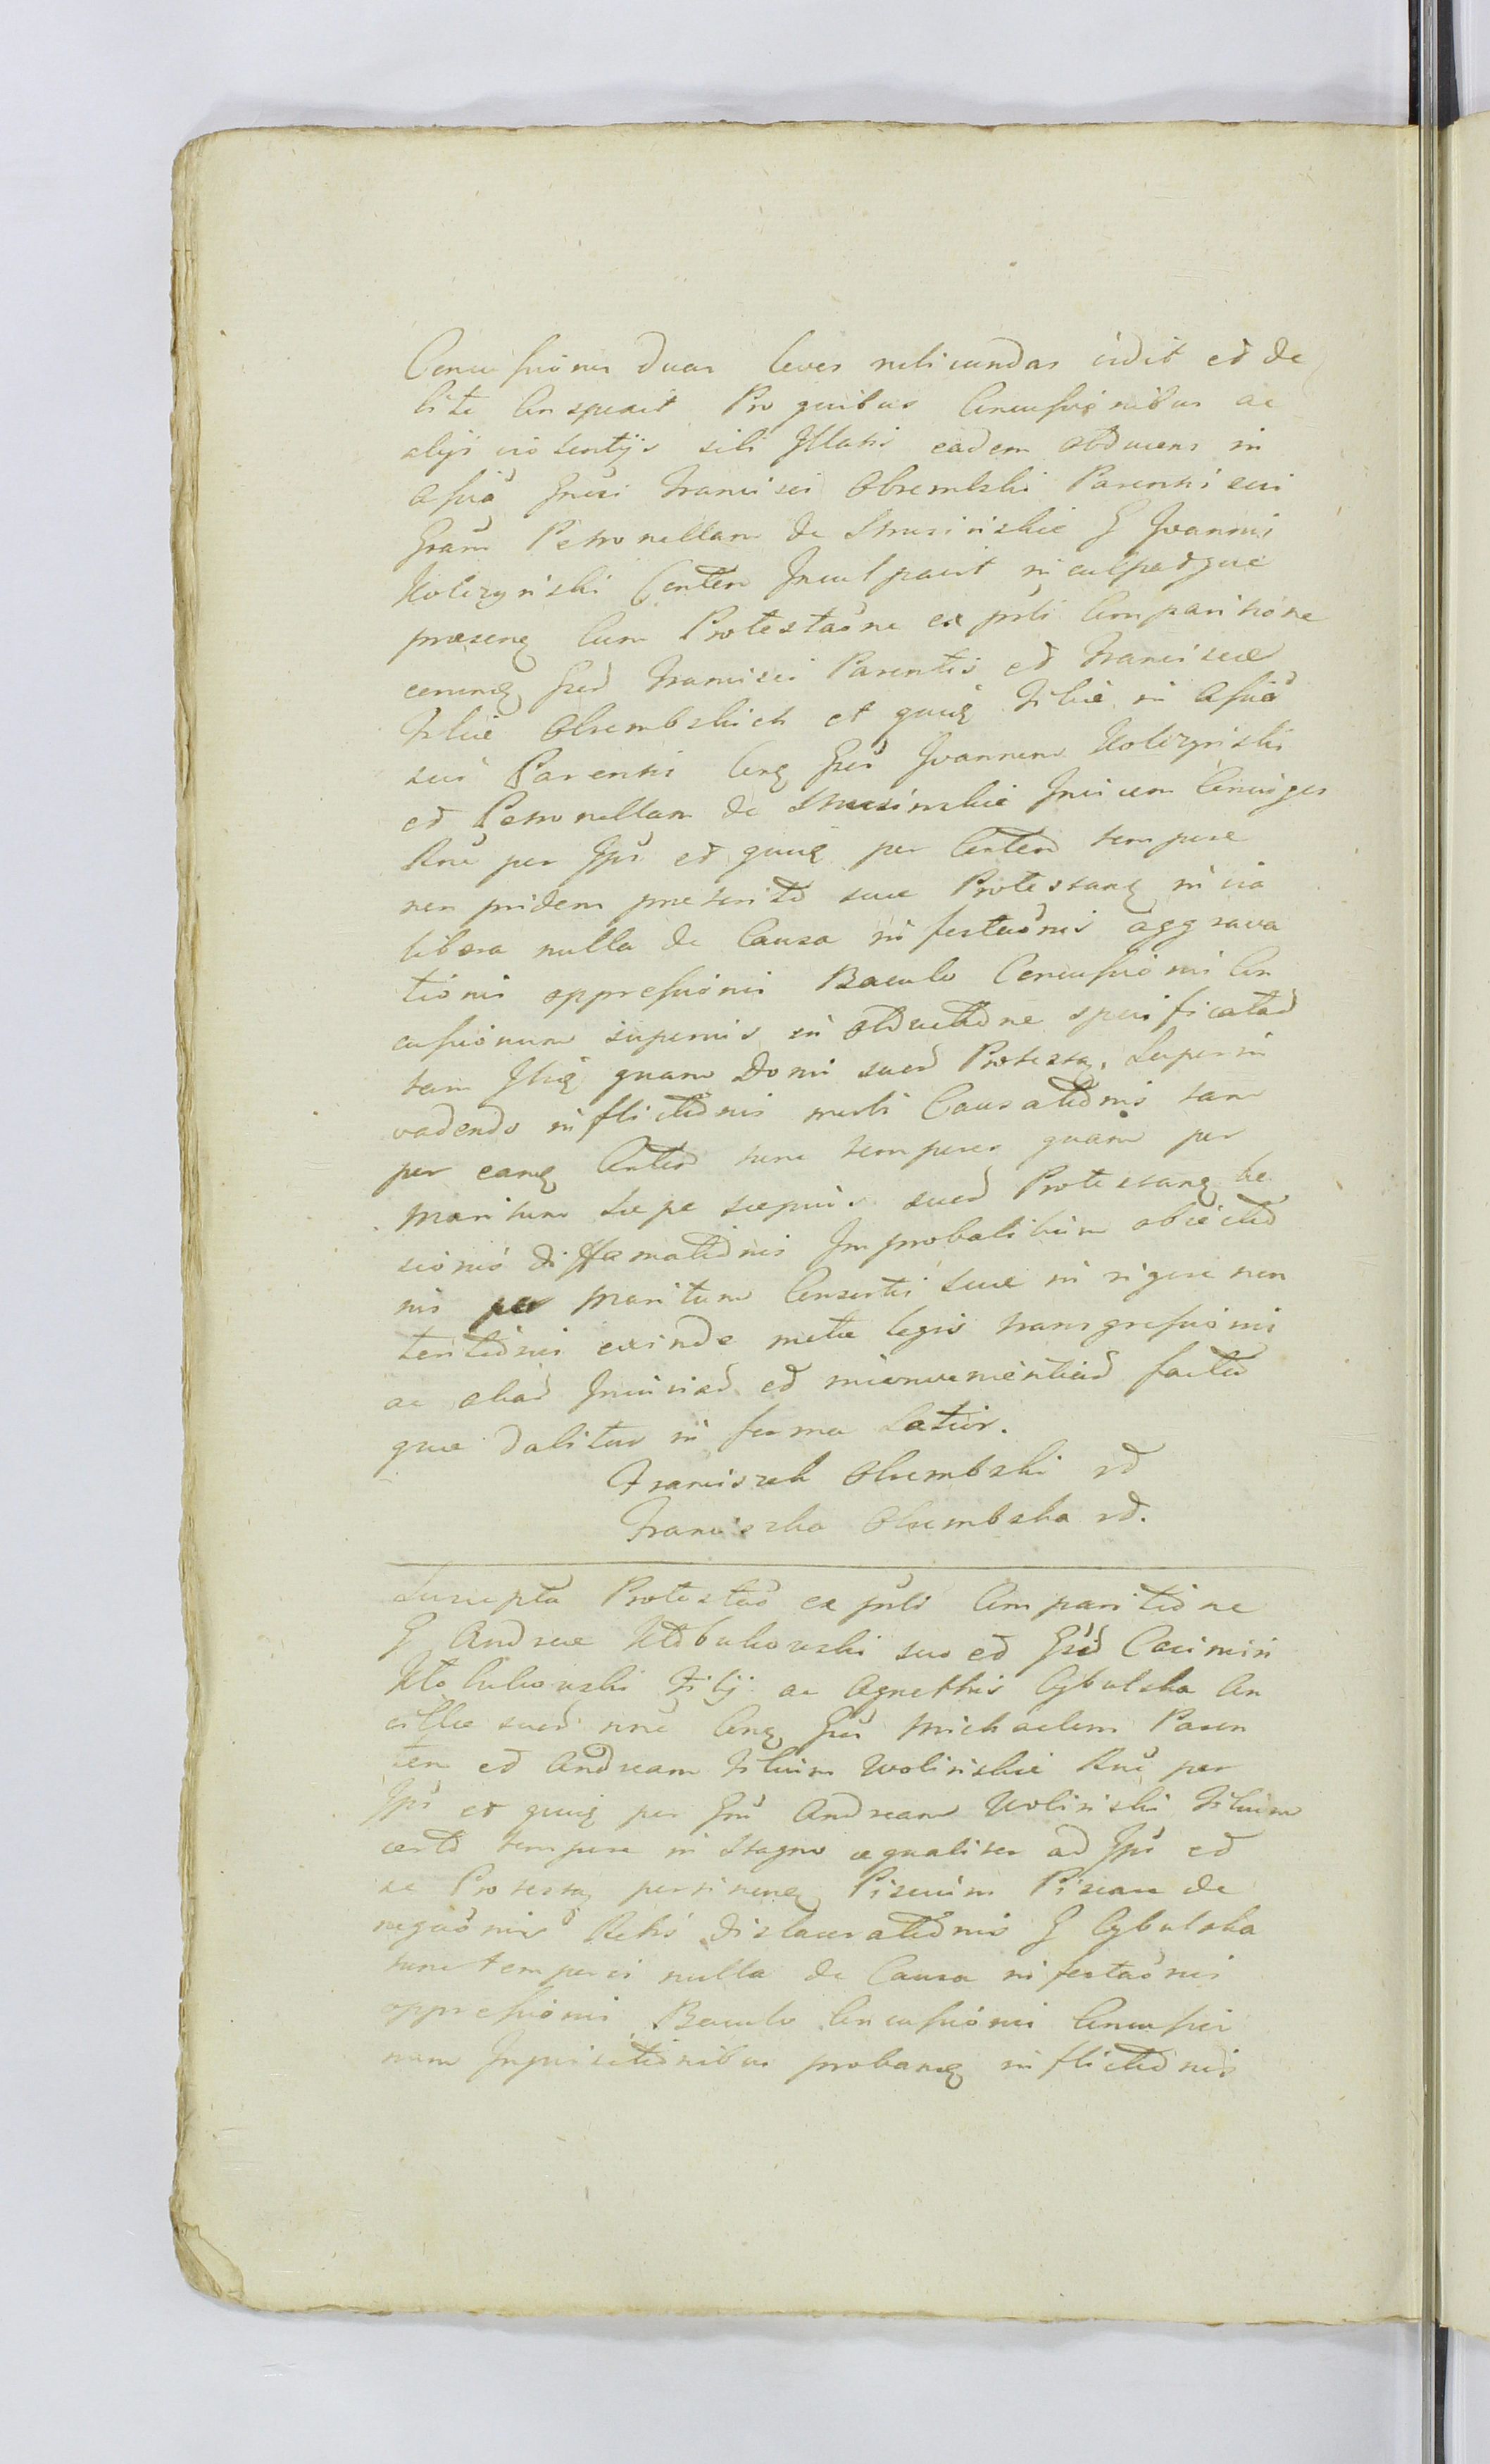 Concussiones duas leves rubicundas vidit et de
bite Conspexit Pro quibus Concussionibus ac
alijs violentijs sibi Illatis eadem obducens in
assia Gnsi Francisci Obrembski Parentis sui
Gram Petronellam de Strusinskie G Joannis
Kotczynski Conten Inculpavit inculpatque
praesenq Cum Protestaone ex pnti Comparitione
eorunq Grod Francisci Parentis et Francisca
Filia Obrembskich et quiq Filia in assia
sui Parentis Conq Gros Joannem Kotczynski
et Petronellam de Strusinskie Invicem Conjuges
Rne per Ipso et quiq per Conten tempore
non pridem praeterito suae Protestanq in via
libera nulla de Causa infestaonis aggrava
tionis oppressionis Baculo Concussionis Con
cussionum superius in obductione specificatad
tam Ibiq quam Domi suad Protestaq, Superin
vadendo inflictionis multi Causationis tam
per eanq Conten tunc temporis quam per
Maritum saepe saepius suad Protestanq lae
sionis diffamationis Improbabilium obiectio
nis per Maritum Consortis suae in rigore non
tentionis exinde metae legis transgressionis
ac aliad Injuriad et inconvenientiad facta
quae dabitur in forma Latior.
Franciszek Obrembski rd
Franciszka Obrembska rd.
Suscepta Protestao ex pnti Comparitione
G Andreae suo et Grod Casimiri
Filij ac Agnethis Cybulska An
cillae suad nne Conq Gros Michaelem Paren
tem et Andream Filium Wolinskie Rne per
Ipso et quiq per Gnu Andream Wolinski Filium
certo tempore in Stagno aequaliter ad Ipso et
se Protestaq pertinenq Piscium Piscare de
negaonis Retis dislacerationis G Cybulska
tunc temporis nulla de Causa infestaonis
oppressionis Baculo Concussionis Concussio
num Inquisitionibus probanq inflictionis